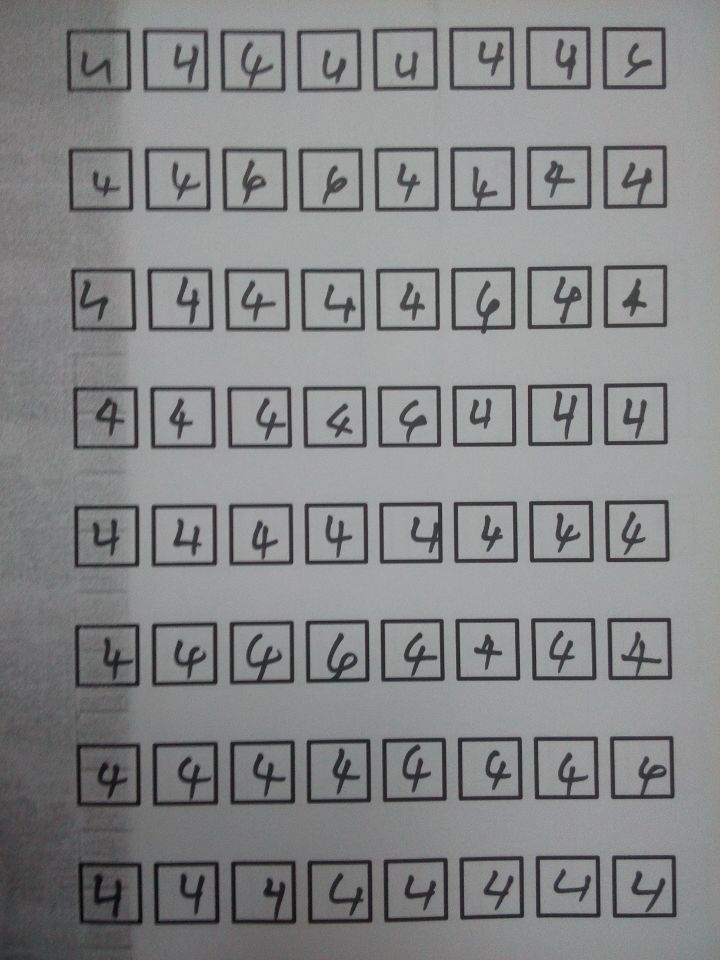 4 4 4 4 4 4 4 4
4 4 4 4 4 4 4 4
4 4 4 4 4 4 4 4
4 4 4 4 4 4 4 4
4 4 4 4 4 4 4 4
4 4 4 4 4 4 4 4
4 4 4 4 4 4 4 4
4 4 4 4 4 4 4 4